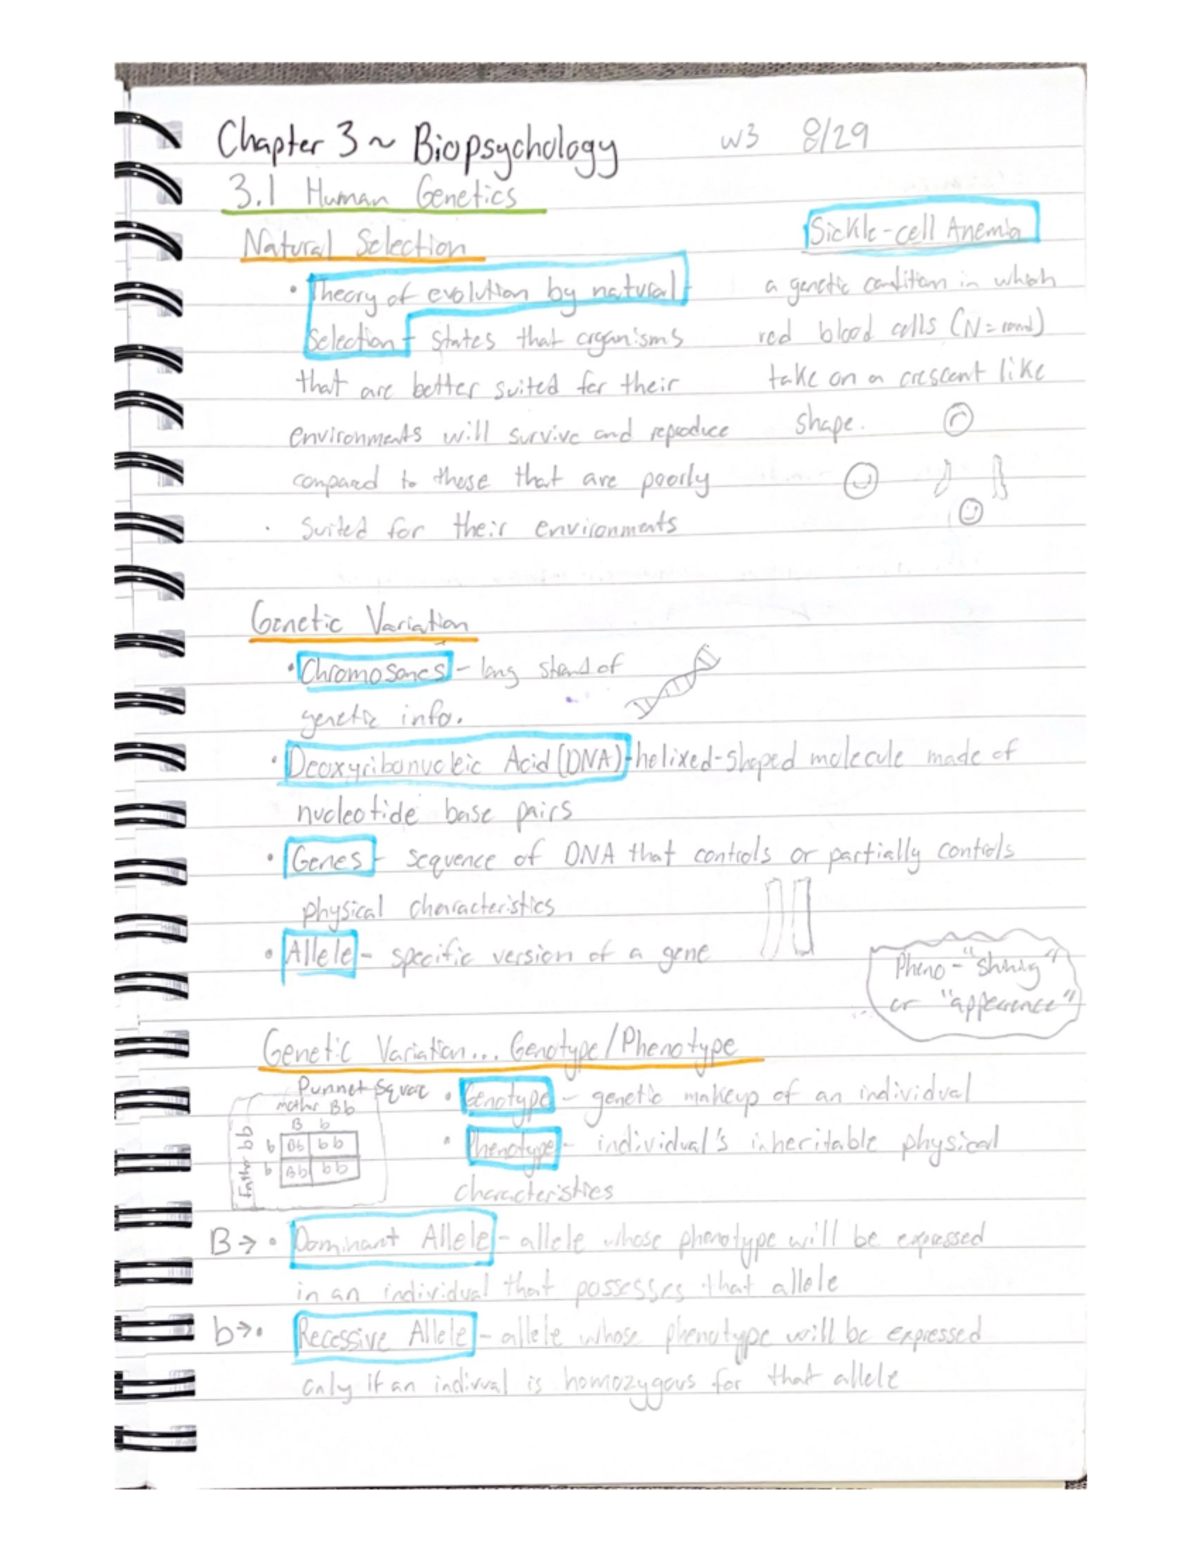 Chapter 3 ~ Biopsychology
w3 8/29
3.1 Human Genetics
Natural Selection
• Theory of evolution by natural
Selection - states that organisms
that are better suited for their
environments will survive and reproduce
compared to those that are poorly
suited for their environments
Sickle-cell Anemia
a genetic condition in which
red blood cells (N=round)
take on a crescent like
shape.
Genetic Variation
• Chromosomes - long strand of
genetic info.
• Deoxyribonucleic Acid (DNA) - helixed-shaped molecule made of
nucleotide base pairs
• Genes - sequence of DNA that controls or partially controls
physical characteristics
• Allele - specific version of a gene
Pheno - "shinig"
or "appearence"
Genetic Variation... Genotype/Phenotype
Punnet Square
mother Bb
B b
Father bb
b Bb bb
b Bb bb
• Genotype - genetic makeup of an individual
• Phenotype - individual's inheritable physical
characteristics
B → • Dominant Allele - allele whose phenotype will be expressed
in an individual that possesses that allele
b → • Recessive Allele - allele whose phenotype will be expressed
only if an indivual is homozygous for that allele